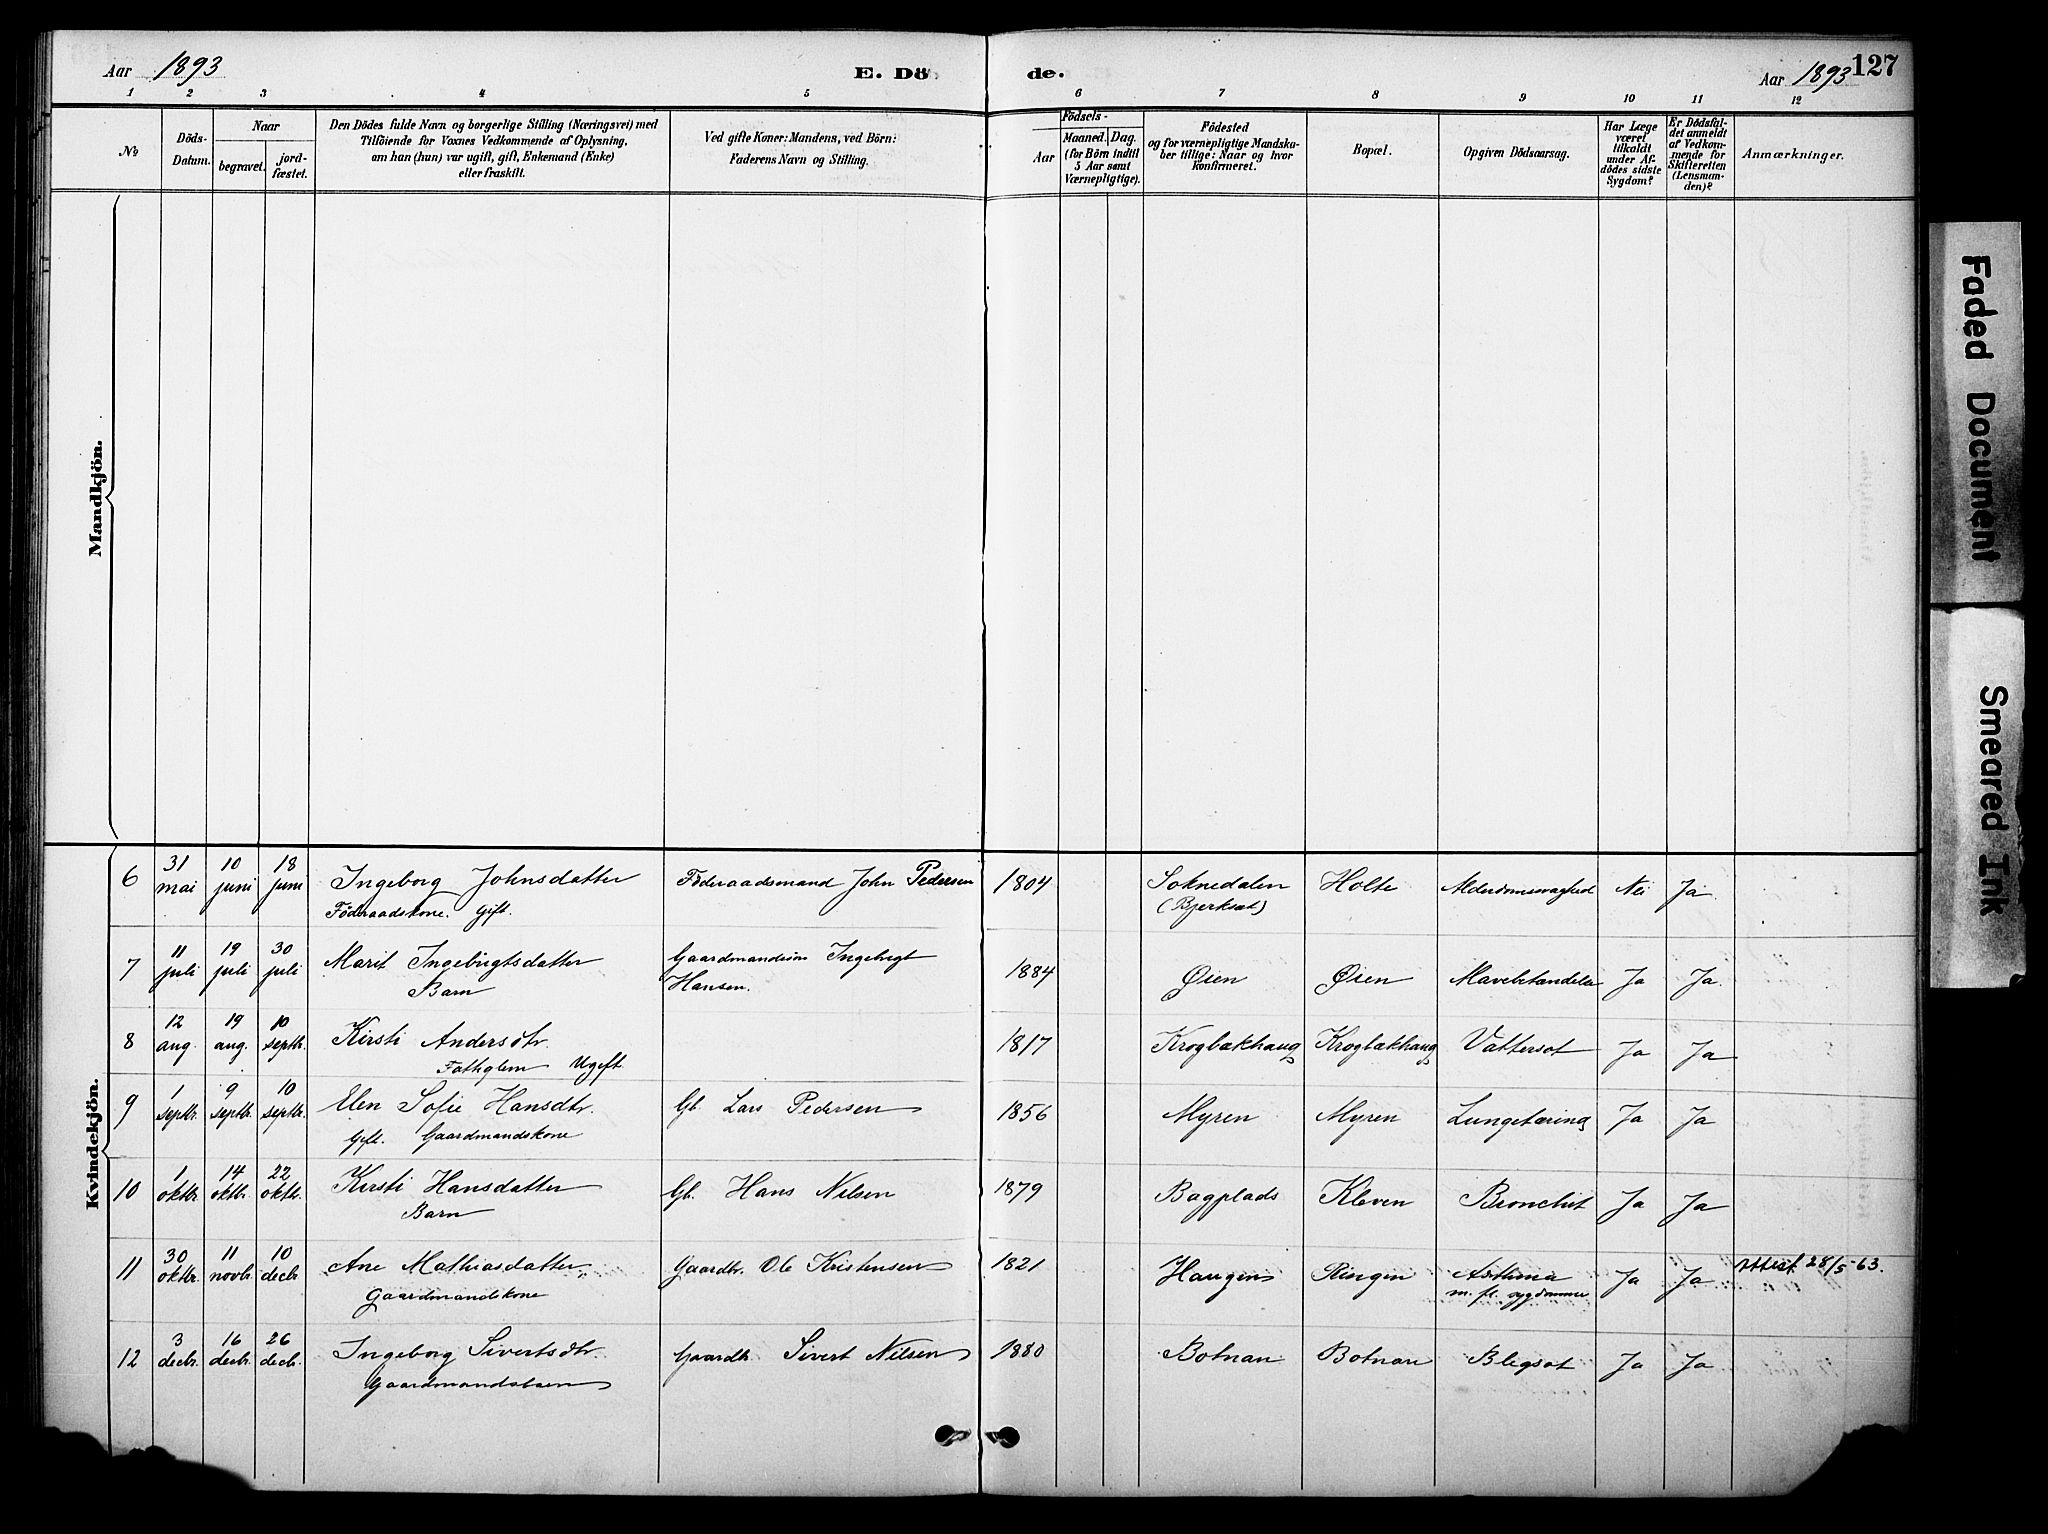 Aar 1893
E. Dö
de.
Aar 1893
127
1 2 3 4 5 6 7 8 9 10 11 12
No
Döds-
Datum.
Naar
begravet.
jord-
fæstet.
Den Dödes fulde Navn og borgerlige Stilling (Næringsvei) med
Tilföiende for Voxnes Vedkommende af Oplysning,
om han (hun) var ugift, gift, Enkemand (Enke)
eller fraskilt.
Ved gifte Koner: Mandens, ved Börn:
Faderens Navn og Stilling.
Födsels-
Aar
Maaned. Dag.
(for Börn indtil
5 Aar samt
Værnepligtige).
Födested
og for værnepligtige Mandska-
ber tillige: Naar og hvor
konfirmeret.
Bopæl.
Opgiven Dödsaarsag.
Har Læge
været
tilkaldt
under Af-
dödes sidste
Sygdom?
Er Dödsfal-
det anmeldt
af Vedkom-
mende for
Skifteretten
(Lensman-
den)?
Anmærkninger.
Mandkjön.
Kvindekjön.
6 31 mai 10 juni 18 juni Ingeborg Johnsdatter Föderaadsmand John Pedersen 1804 Soknedalen Holte Alderdomssvaghed Nei Ja
Föderaadskone. Gift. (Bjerksæt)
7 11 juli 19 juli 30 juli Marit Ingebrigtsdatter Gaardmandssön Ingebrigt 1884 Øien Øien Mavebetændelse Ja Ja.
Barn Hansen.
8 12 aug. 19 aug. 10 septb. Kirsti Andersdtr. 1817 Krogbækhaug Krogbækhaug Vattersot Ja Ja
Fattiglem Ugift
9 1 septbr. 9 septbr. 10 septbr. Elen Sofie Hansdtr. Gb. Lars Pedersen 1856 Myren Myren Lungetæring Ja Ja
Gift. Gaardmandskone
10 1 oktbr. 14 oktbr. 22 oktbr. Kirsti Hansdatter Gb. Hans Nilsen 1879 Bagplads Kleven Bronchit Ja Ja
Barn
11 30 oktbr. 11 novbr. 10 decbr. Ane Mathiasdatter Gaardbr. Ole Kristensen 1821 Haugen Ringen Asthma Ja Ja Attest 28/5-63.
Gaardmandskone m. fl. sygdomme
12 3 decbr. 16 decbr. 26 decbr. Ingeborg Sivertsdtr. Gaardbr. Sivert Nilsen 1880 Botnan Botnan Blegsot Ja Ja
Gaardmandsbarn
Faded Document
Smeared Ink